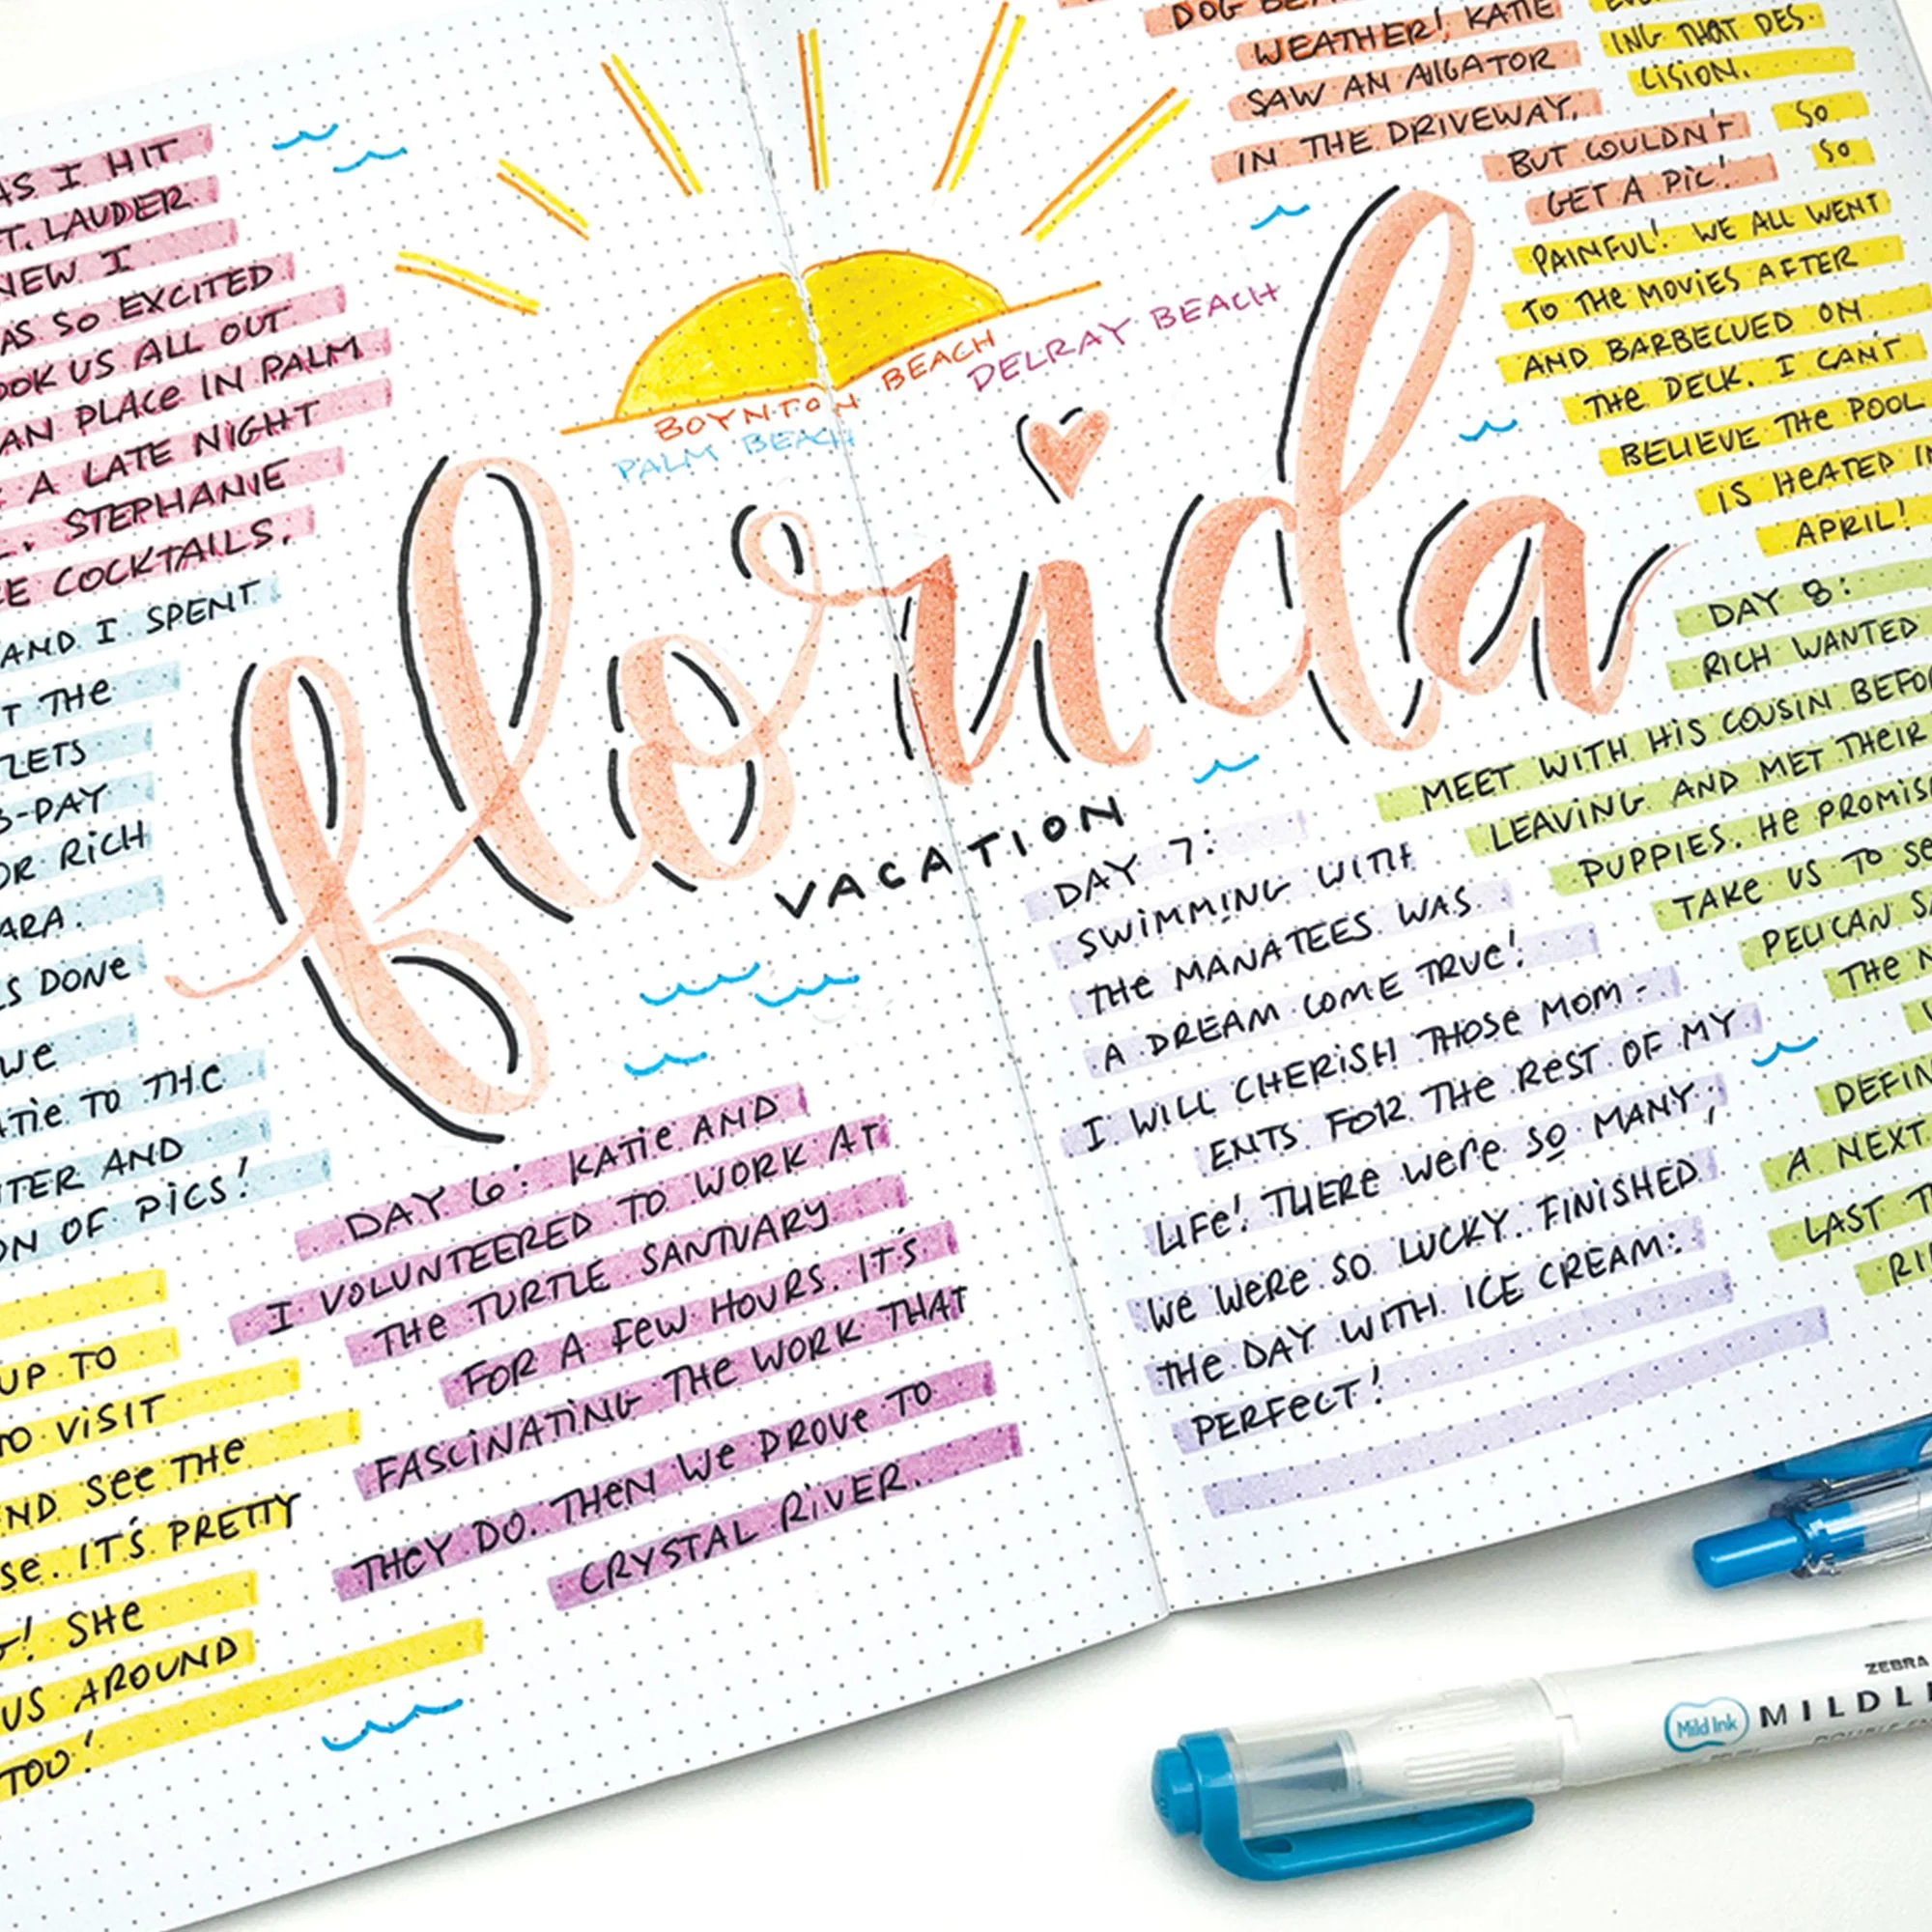 AS I HIT
T. LAUDER.
NEW I
AS SO EXCITED
OOK US ALL OUT
AN PLACE IN PALM
A LATE NIGHT
STEPHANIE
E COCKTAILS.
AND I SPENT
T THE
LETS
3-DAY
OR RICH
ARA.
LS DONE
WE
ATIE TO THE
TER AND
ON OF PICS!
UP TO
TO VISIT
ND SEE THE
SE. IT'S PRETTY
G! SHE
US AROUND
TOO!
BOYNTON BEACH
DELRAY BEACH
PALM BEACH
florida
VACATION
DAY 6: KATIE AND
I VOLUNTEERED TO WORK AT
THE TURTLE SANTUARY
FOR A FEW HOURS. IT'S
FASCINATING THE WORK THAT
THEY DO. THEN WE DROVE TO
CRYSTAL RIVER.
DOG BEA
WEATHER! KATIE
SAW AN AlIGATOR
IN THE DRIVEWAY,
BUT COULDN'T
GET A PIC!
ING THAT DES-
CISION.
SO
SO
PAINFUL! WE ALL WENT
TO THE MOVIES AFTER
AND BARBECUED ON
THE DECK. I CAN'T
BELIEVE THE POOL
IS HEATED IN
APRIL!
DAY 7:
SWIMMING WITH
THE MANATEES WAS
A DREAM COME TRUE!
I WILL CHERISH THOSE MOM-
ENTS FOR THE REST OF MY
LIFE! THERE WERE SO MANY;
WE WERE SO LUCKY. FINISHED
THE DAY WITH ICE CREAM:
PERFECT!
DAY 8:
RICH WANTED
MEET WITH HIS COUSIN BEFO
LEAVING AND MET THEIR
PUPPIES. HE PROMIS
TAKE US TO SE
PELICAN SA
THE N
DEFIN
A NEXT
LAST T
RI
ZEBRA
Mild Ink MILDLI